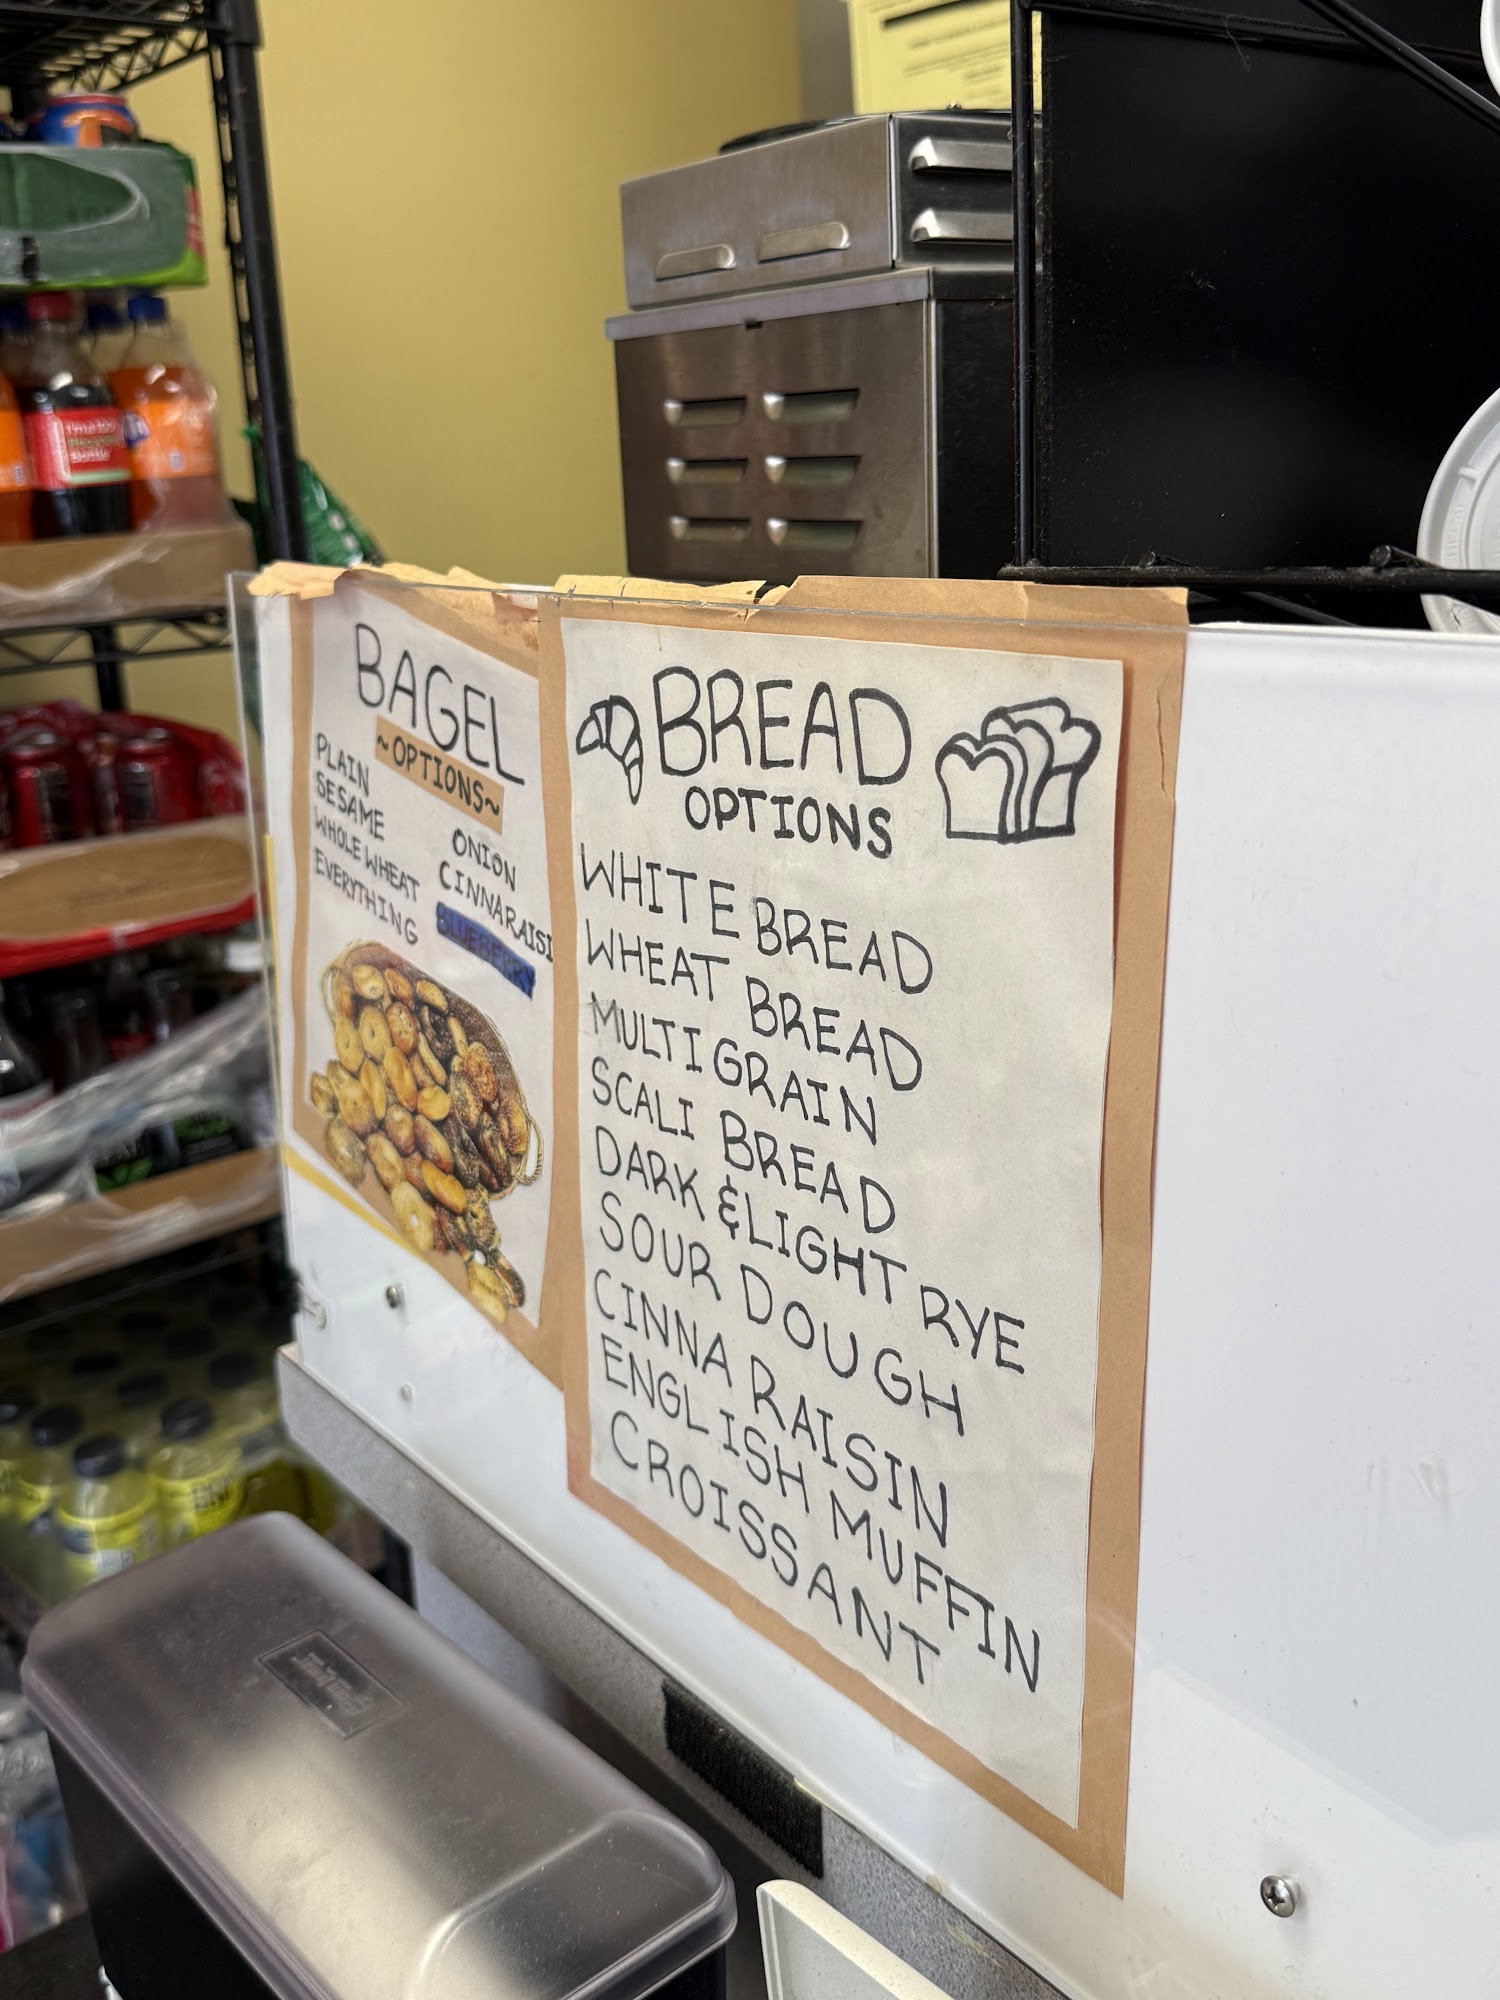 BAGEL
~OPTIONS~
PLAIN
SESAME
WHOLE WHEAT
EVERYTHING
ONION
CINNARAISI
BLUEBERRY
BREAD
OPTIONS
WHITE BREAD
WHEAT BREAD
MULTIGRAIN
SCALI BREAD
DARK & LIGHT RYE
SOUR DOUGH
CINNA RAISIN
ENGLISH MUFFIN
CROISSANT